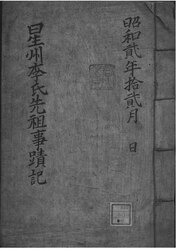 昭和貳年拾貳月　日
星州李氏先祖事蹟記